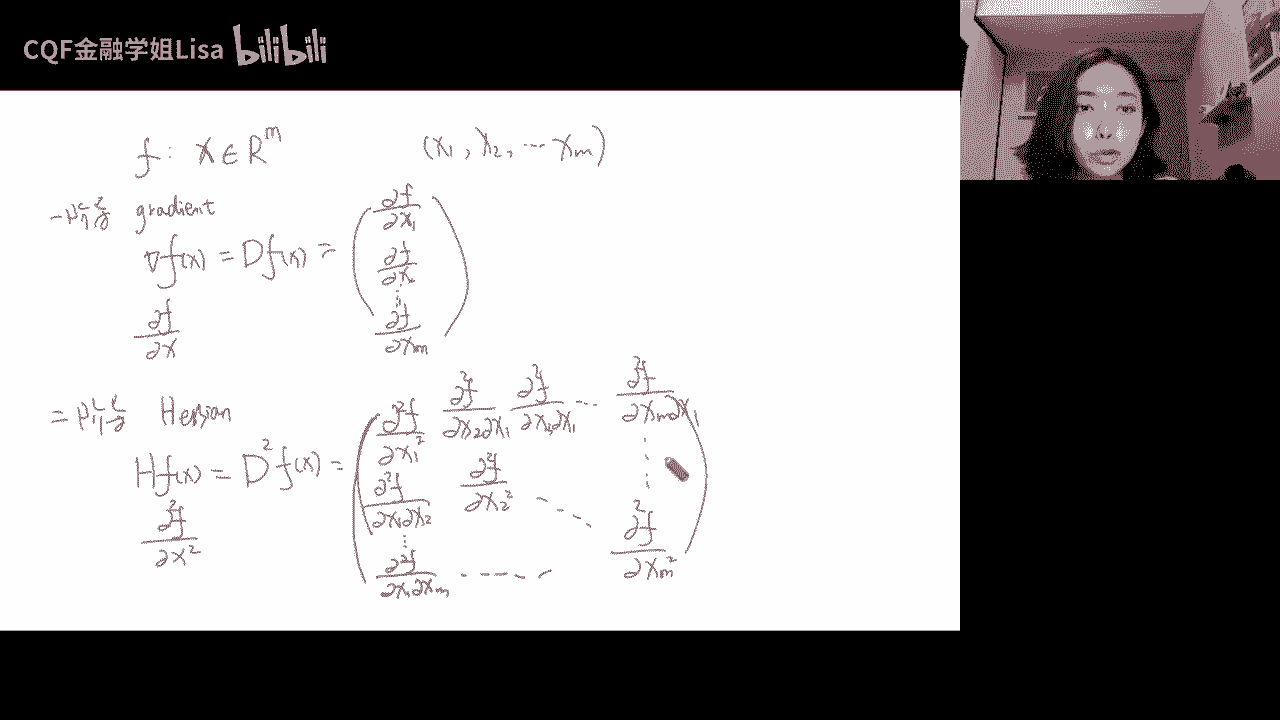 CQF金融学姐Lisa bilibili
f: x ∈ R^m (x₁, x₂, ⋯ xₘ)
一阶 gradient
∇f(x) = Df(x) = ( ∂f/∂x₁ ∂f/∂x ⋮ ∂f/∂xₘ )
∂f/∂x
二阶 Hessian
Hf(x) = D²f(x) = ( ∂²f/∂x₁² ∂²f/∂x₂∂x₁ ∂²f/∂x₁ ⋯ ∂²f/∂xₘ∂x₁
∂²f/∂x₁∂x₂ ∂²f/∂x₂² ⋱ ⋮
⋮
∂²f/∂x₁∂xₘ ⋯ ∂²f/∂xₘ² )
∂²f/∂x²